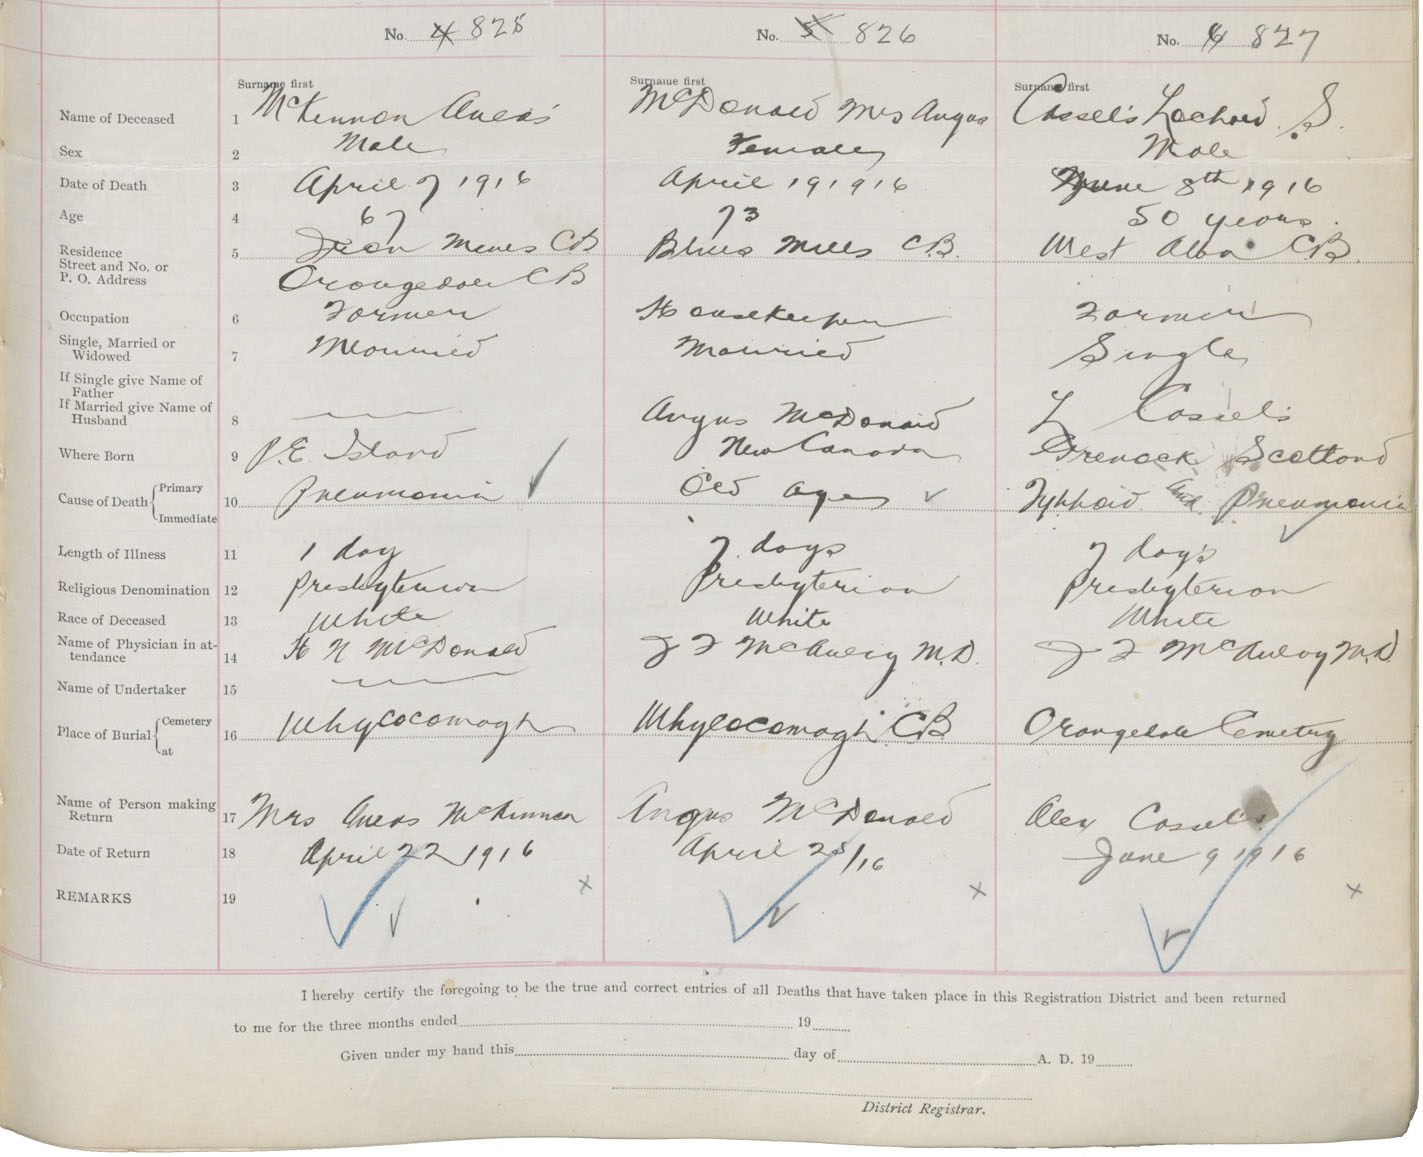 No. 4 825
No. 5 826
No. 6 827
Surname first
Surname first
Surname first
Name of Deceased 1 McKinnon Aneas McDonald Mrs Angus Cassels Lochard. S.
Sex 2 Male Female Male
Date of Death 3 April 7 1916 April 19 1916 June 8th 1916
Age 4 67 73 50 years.
Residence
Street and No. or
P. O. Address 5 Iron Mines CB Blues Mills C.B. West Alba CB.
Orangedale CB
Occupation 6 Farmer Housekeeper Farmer
Single, Married or
Widowed 7 Married Married Single
If Single give Name of
Father
If Married give Name of
Husband 8 Angus McDonald L Cassels
Where Born 9 P.E. Island New Canada Greenock Scotland
Cause of Death { Primary
Immediate 10 Pneumonia Old Age Typhoid and Pneumonia
Length of Illness 11 1 day 7 days 7 days
Religious Denomination 12 Presbyterian Presbyterian Presbyterian
Race of Deceased 13 White White White
Name of Physician in at-
tendance 14 H N McDonald J F McAulay M.D. J F McAulay M.D.
Name of Undertaker 15
Place of Burial { Cemetery
at 16 Whycocomagh Whycocomagh CB Orangedale Cemetry
Name of Person making
Return 17 Mrs Aneas McKinnon Angus McDonald Alex Cassels
Date of Return 18 April 22 1916 April 25/16 June 9 1916
REMARKS 19 x x x
I hereby certify the foregoing to be the true and correct entries of all Deaths that have taken place in this Registration District and been returned
to me for the three months ended 19
Given under my hand this day of A. D. 19
District Registrar.